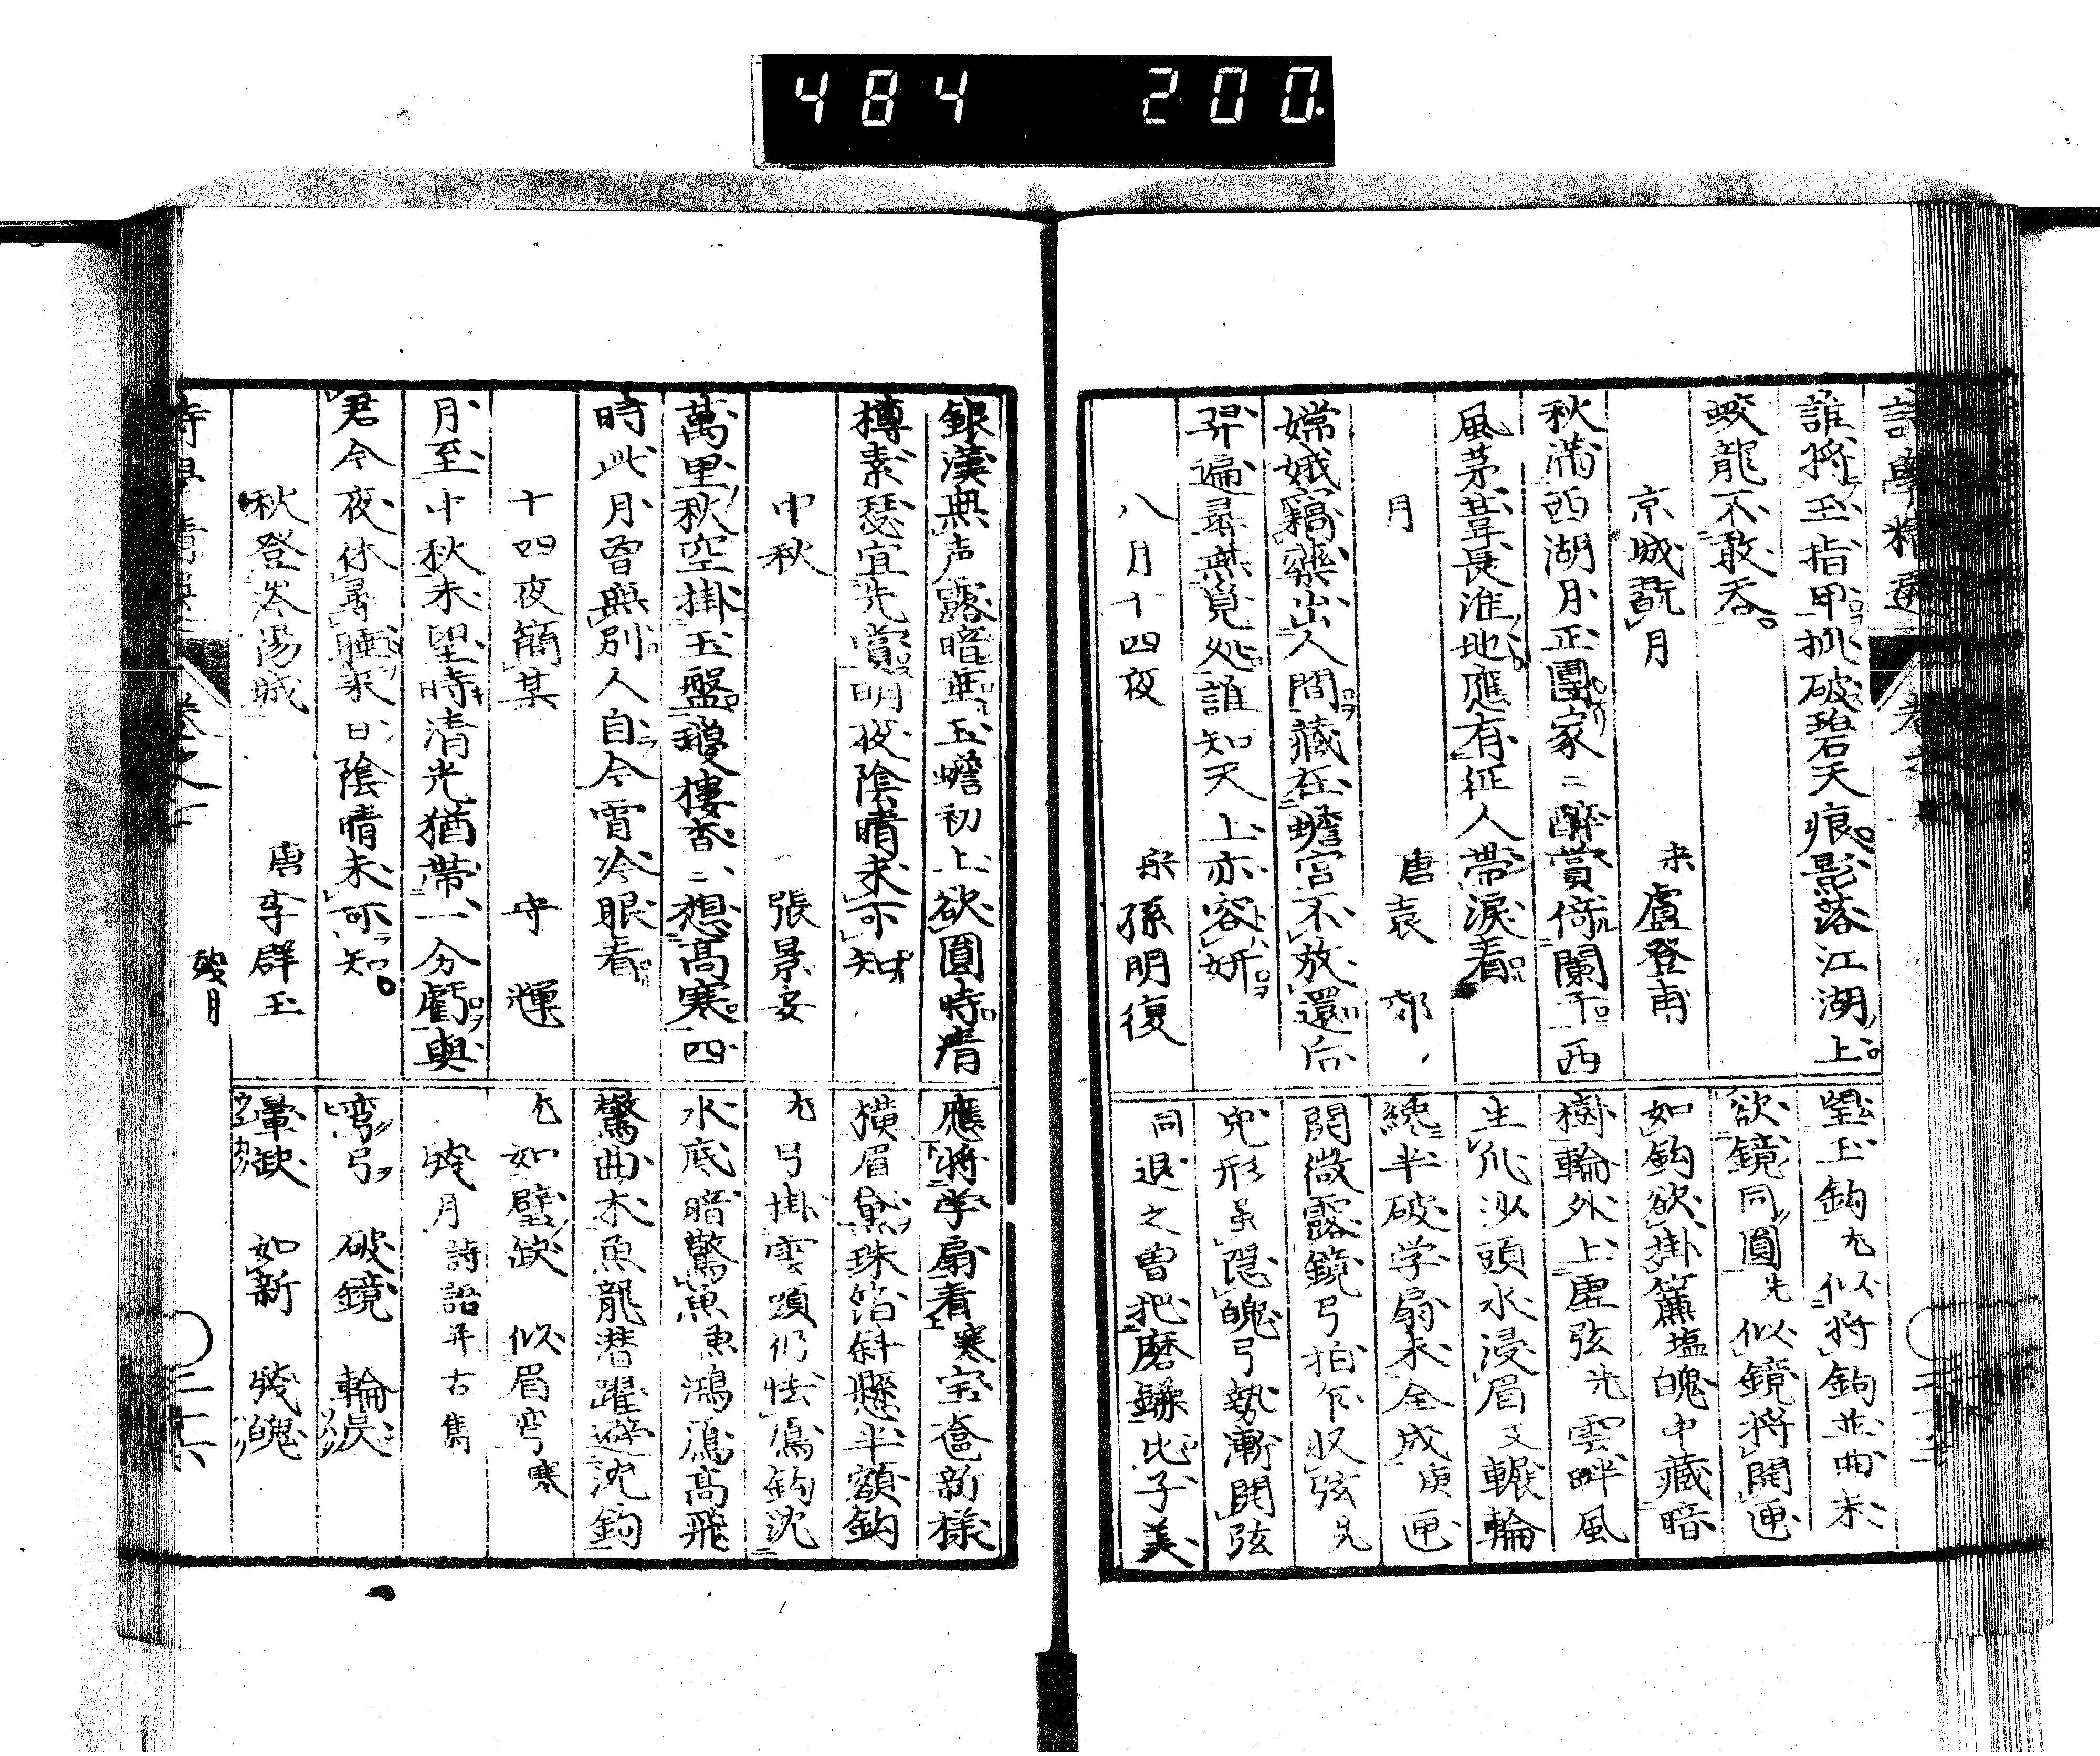 484 200.
誰將玉指甲抓破碧天痕影落江湖上
蛟龍不敢吞
京城翫月 宋盧登甫
秋滿西湖月正團家〻醉賞倚闌干西
風茅葦長淮地應有征人帶淚看
月 唐袁郊
嫦娥竊藥出人間藏在蟾宮不放還后
羿遍尋無覓処誰知天上亦容姸
八月十四夜 宋孫明復
望玉鈎尤似将鈎並曲未
欲鏡同圓先似鏡将開匣
如鈎欲掛簾塩魄中藏暗
樹輪外上虚弦先雲畔風
生爪沙頭水浸眉又輾輪
纔半破学扇未全成庚匣
開微露鏡弓拍乍収弦先
兜形虽隠魄弓勢漸開弦
同退之曽把磨鎌比子美
銀漢無声露暗垂玉蟾初上欲圓時清
樽素瑟宜先賞明夜陰晴未可知
中秋 張景安
萬里秋空掛玉盤瓊樓杳〻想高寒四
時此月曽無別人自今宵冷眼看
十四夜簡某 守輝
月至中秋未望時清光猶帶一分虧與
君今夜休尋睡来日陰晴未可知
秋登岑陽城 唐李群玉
殘月
應将学扇看寒宝奩新樣
橫眉黛珠箔斜懸半額鈎
尤弓掛雲頭仍怯鴈鈎沈
水底暗驚魚魚鴻鴈高飛
驚曲木魚龍潜躍避沈鈎
尤如璧缺似眉弯寒
残月詩語并古雋
弯弓 破鏡 輪誤
暈缺 如新 残魄